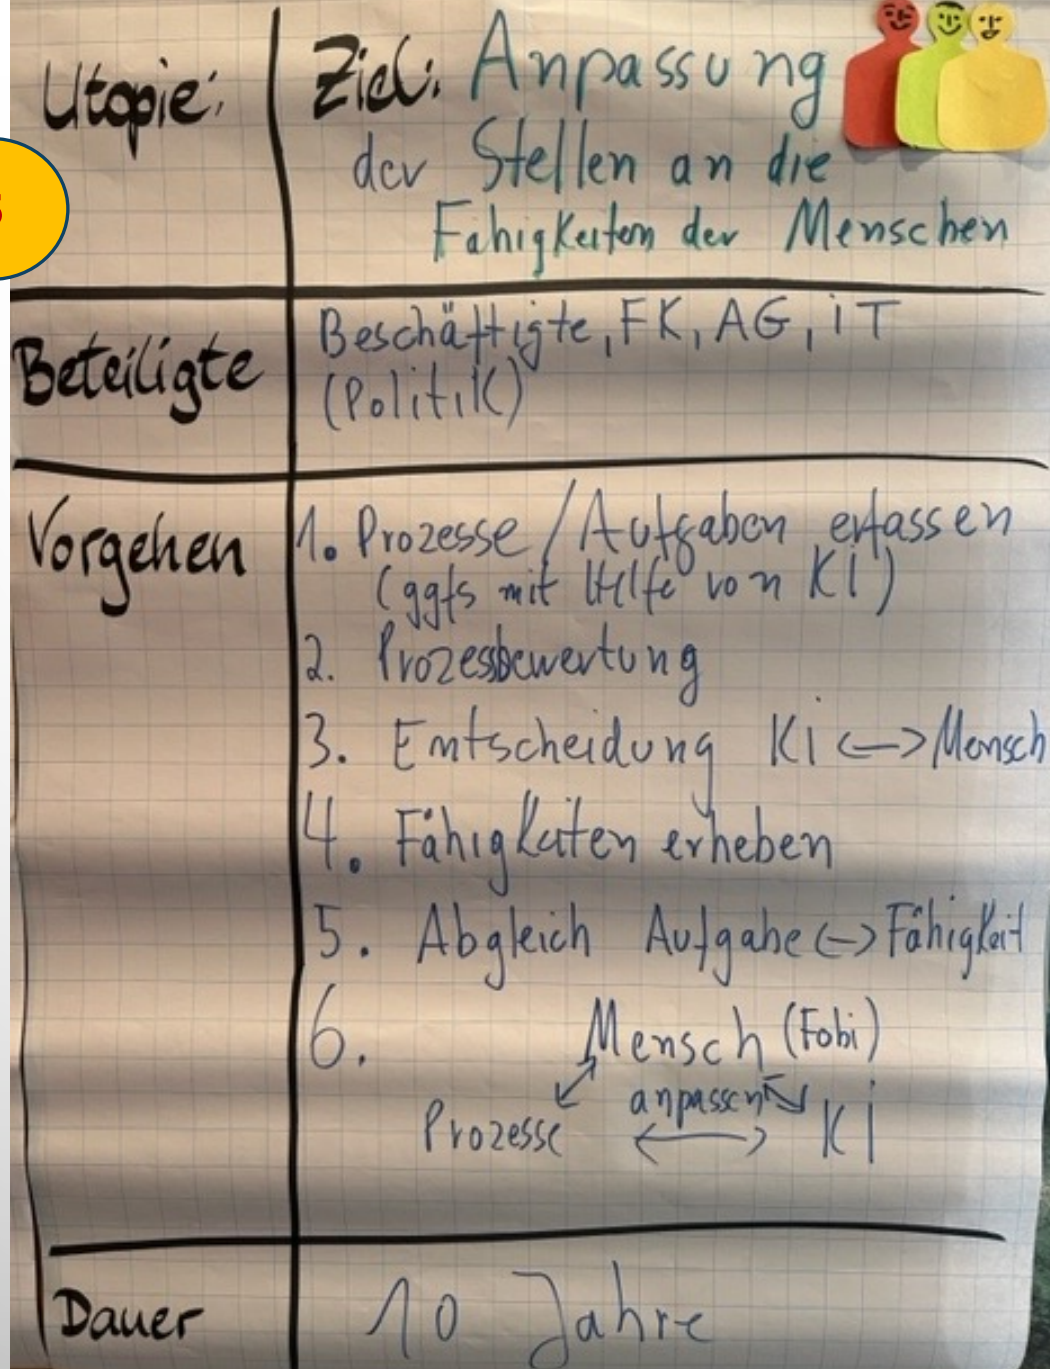 Utopie:
Ziel: Anpassung
der Stellen an die
Fähigkeiten der Menschen
Beteiligte
Beschäftigte, FK, AG, iT
(Politik)
Vorgehen
1. Prozesse / Aufgaben erfassen
(ggfs mit Hilfe von KI)
2. Prozessbewertung
3. Entscheidung Ki <-> Mensch
4. Fähigkeiten erheben
5. Abgleich Aufgabe <-> Fähigkeit
6. Mensch (Fobi)
anpassen
Prozesse <-> Ki
Dauer
10 Jahre